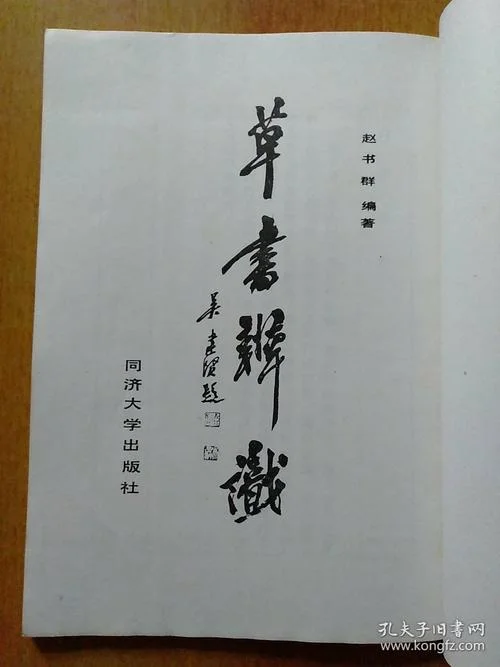 赵书群 编著
草書辨識
吴建贤题
同济大学出版社
孔夫子旧书网
www.kongfz.com